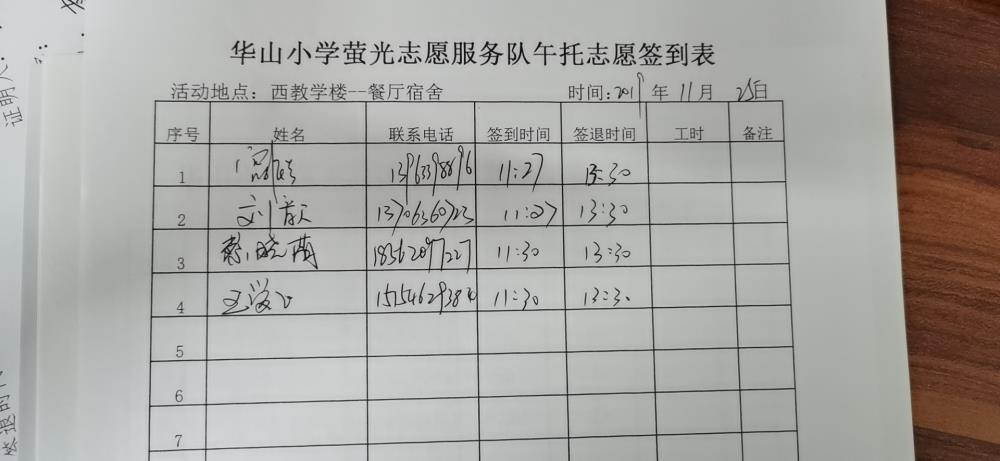 华山小学萤光志愿服务队午托志愿签到表
活动地点：西教学楼--餐厅宿舍 时间：2019年11月25日
序号 姓名 联系电话 签到时间 签退时间 工时 备注
1 11:27 13:30
2 刘 13706360723 11:27 13:30
3 晓 18562097227 11:30 13:30
4 王 11:30 13:30
5
6
7
证明人：